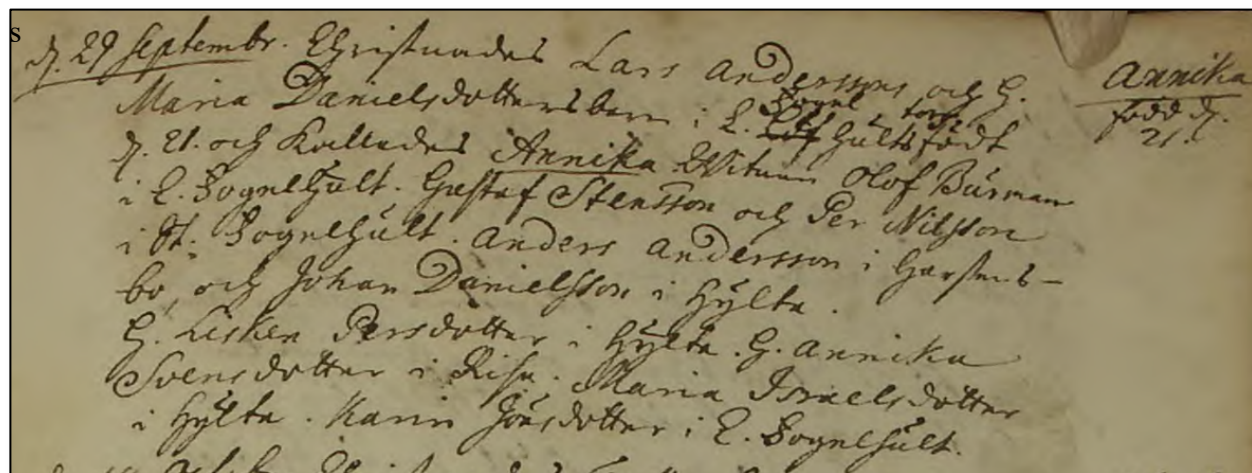 s
d. 29 Septembr. Christnades Lars Anderssons och H.
Maria Danielsdotters barn i L. Fogel torp
Hults födt
d. 21. och Kallades Annika. Witnen Olof Burman
i L. Fogelhult. Gustaf Stensson och Per Nilsson
i St. Fogelhult. Anders Andersson i Harstens-
bo, och Johan Danielsson i Hylta.
H. Lisken Persdotter i Hylta. H. Annika
Svensdotter i Risa. Maria Israelsdotter
i Hylta. Karin Jönsdotter i L. Fogelhult.
Annika
född d.
21.